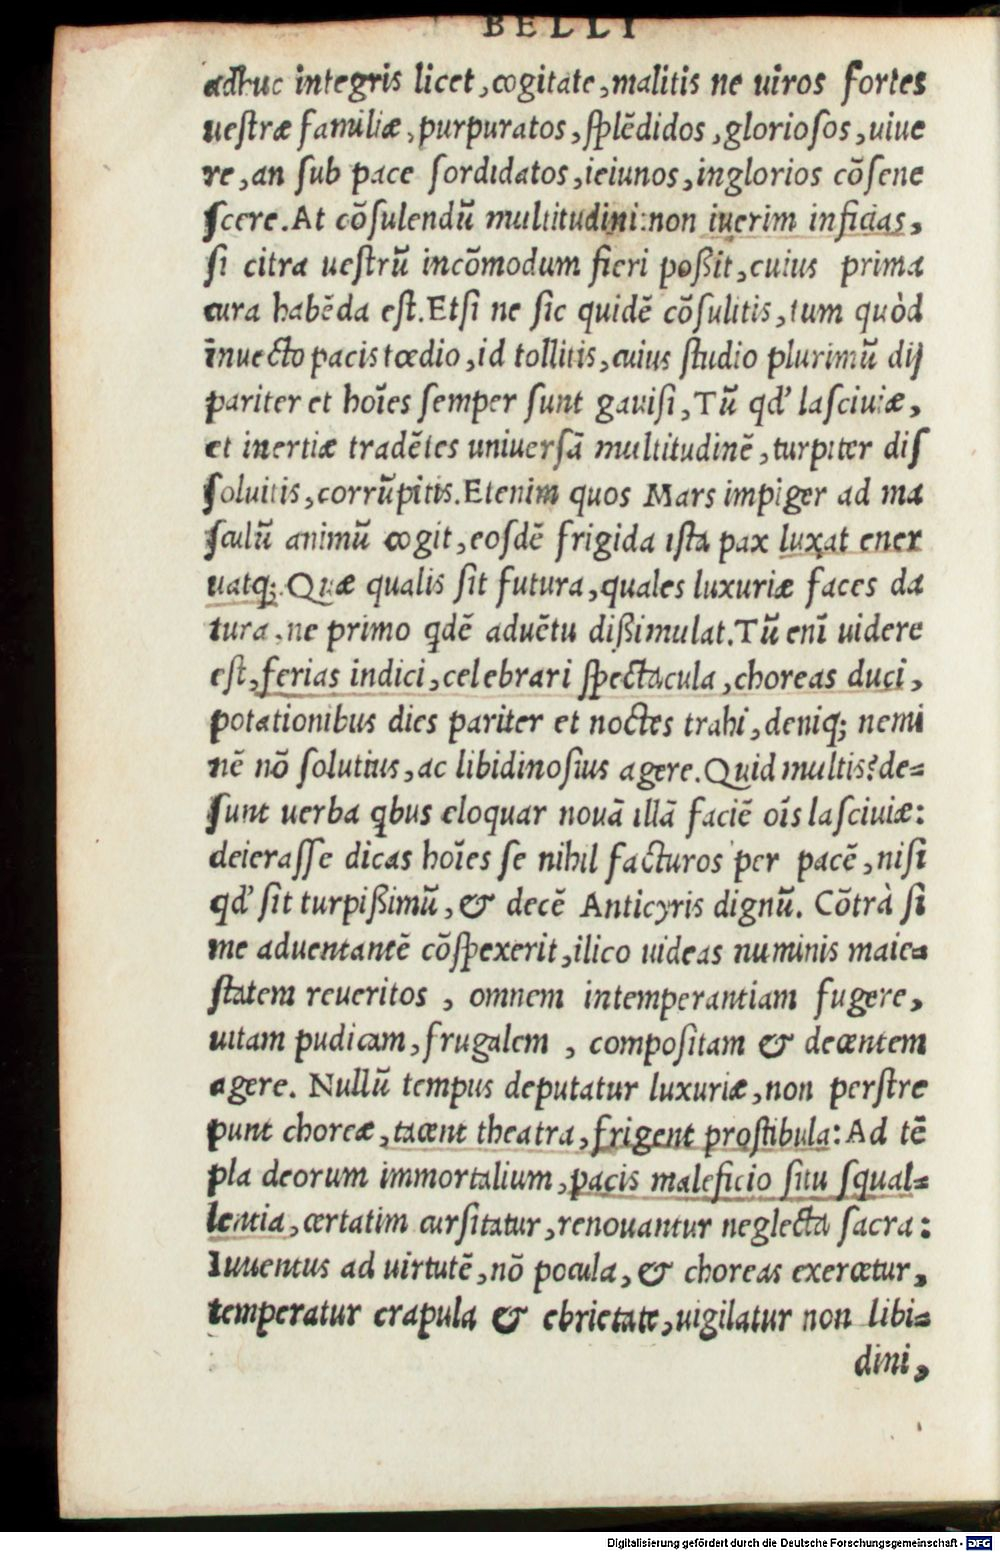 BELLI
adhuc integris licet, cogitate, malitis ne uiros fortes
uestræ familiæ, purpuratos, splẽdidos, gloriosos, uiue
re, an sub pace sordidatos, ieiunos, inglorios cõsene
scere. At cõsulendũ multitudini: non iuerim inficias,
si citra uestrũ incõmodum fieri poßit, cuius prima
cura habẽda est. Etsi ne sic quidẽ cõsulitis, tum quòd
inuecto pacis tœdio, id tollitis, cuius studio plurimũ dij
pariter et hoĩes semper sunt gauisi, Tũ qď lasciuiæ,
et inertiæ tradẽtes uniuersã multitudinẽ, turpiter dis
soluitis, corrũpitis. Etenim quos Mars impiger ad ma
sculũ animũ cogit, eosdẽ frigida ista pax luxat ener
uatq;. Quæ qualis sit futura, quales luxuriæ faces da
tura, ne primo qdẽ aduẽtu dißimulat. Tũ enĩ uidere
est, ferias indici, celebrari spectacula, choreas duci,
potationibus dies pariter et noctes trahi, deniq; nemi
nẽ nõ solutius, ac libidinosius agere. Quid multis? de=
sunt uerba qbus eloquar nouã illã faciẽ oĩs lasciuiæ:
deierasse dicas hoĩes se nihil facturos per pacẽ, nisi
qď sit turpißimũ, & decẽ Anticyris dignũ. Cõtrà si
me aduentantẽ cõspexerit, ilico uideas numinis maie=
statem reueritos, omnem intemperantiam fugere,
uitam pudicam, frugalem, compositam & decentem
agere. Nullũ tempus deputatur luxuriæ, non perstre
punt choreæ, tacent theatra, frigent prostibula: Ad tẽ
pla deorum immortalium, pacis maleficio situ squal=
lentia, certatim cursitatur, renouantur neglecta sacra:
Iuuentus ad uirtutẽ, nõ pocula, & choreas exercetur,
temperatur crapula & ebrietate, uigilatur non libi=
dini,
Digitalisierung gefördert durch die Deutsche Forschungsgemeinschaft - DFG